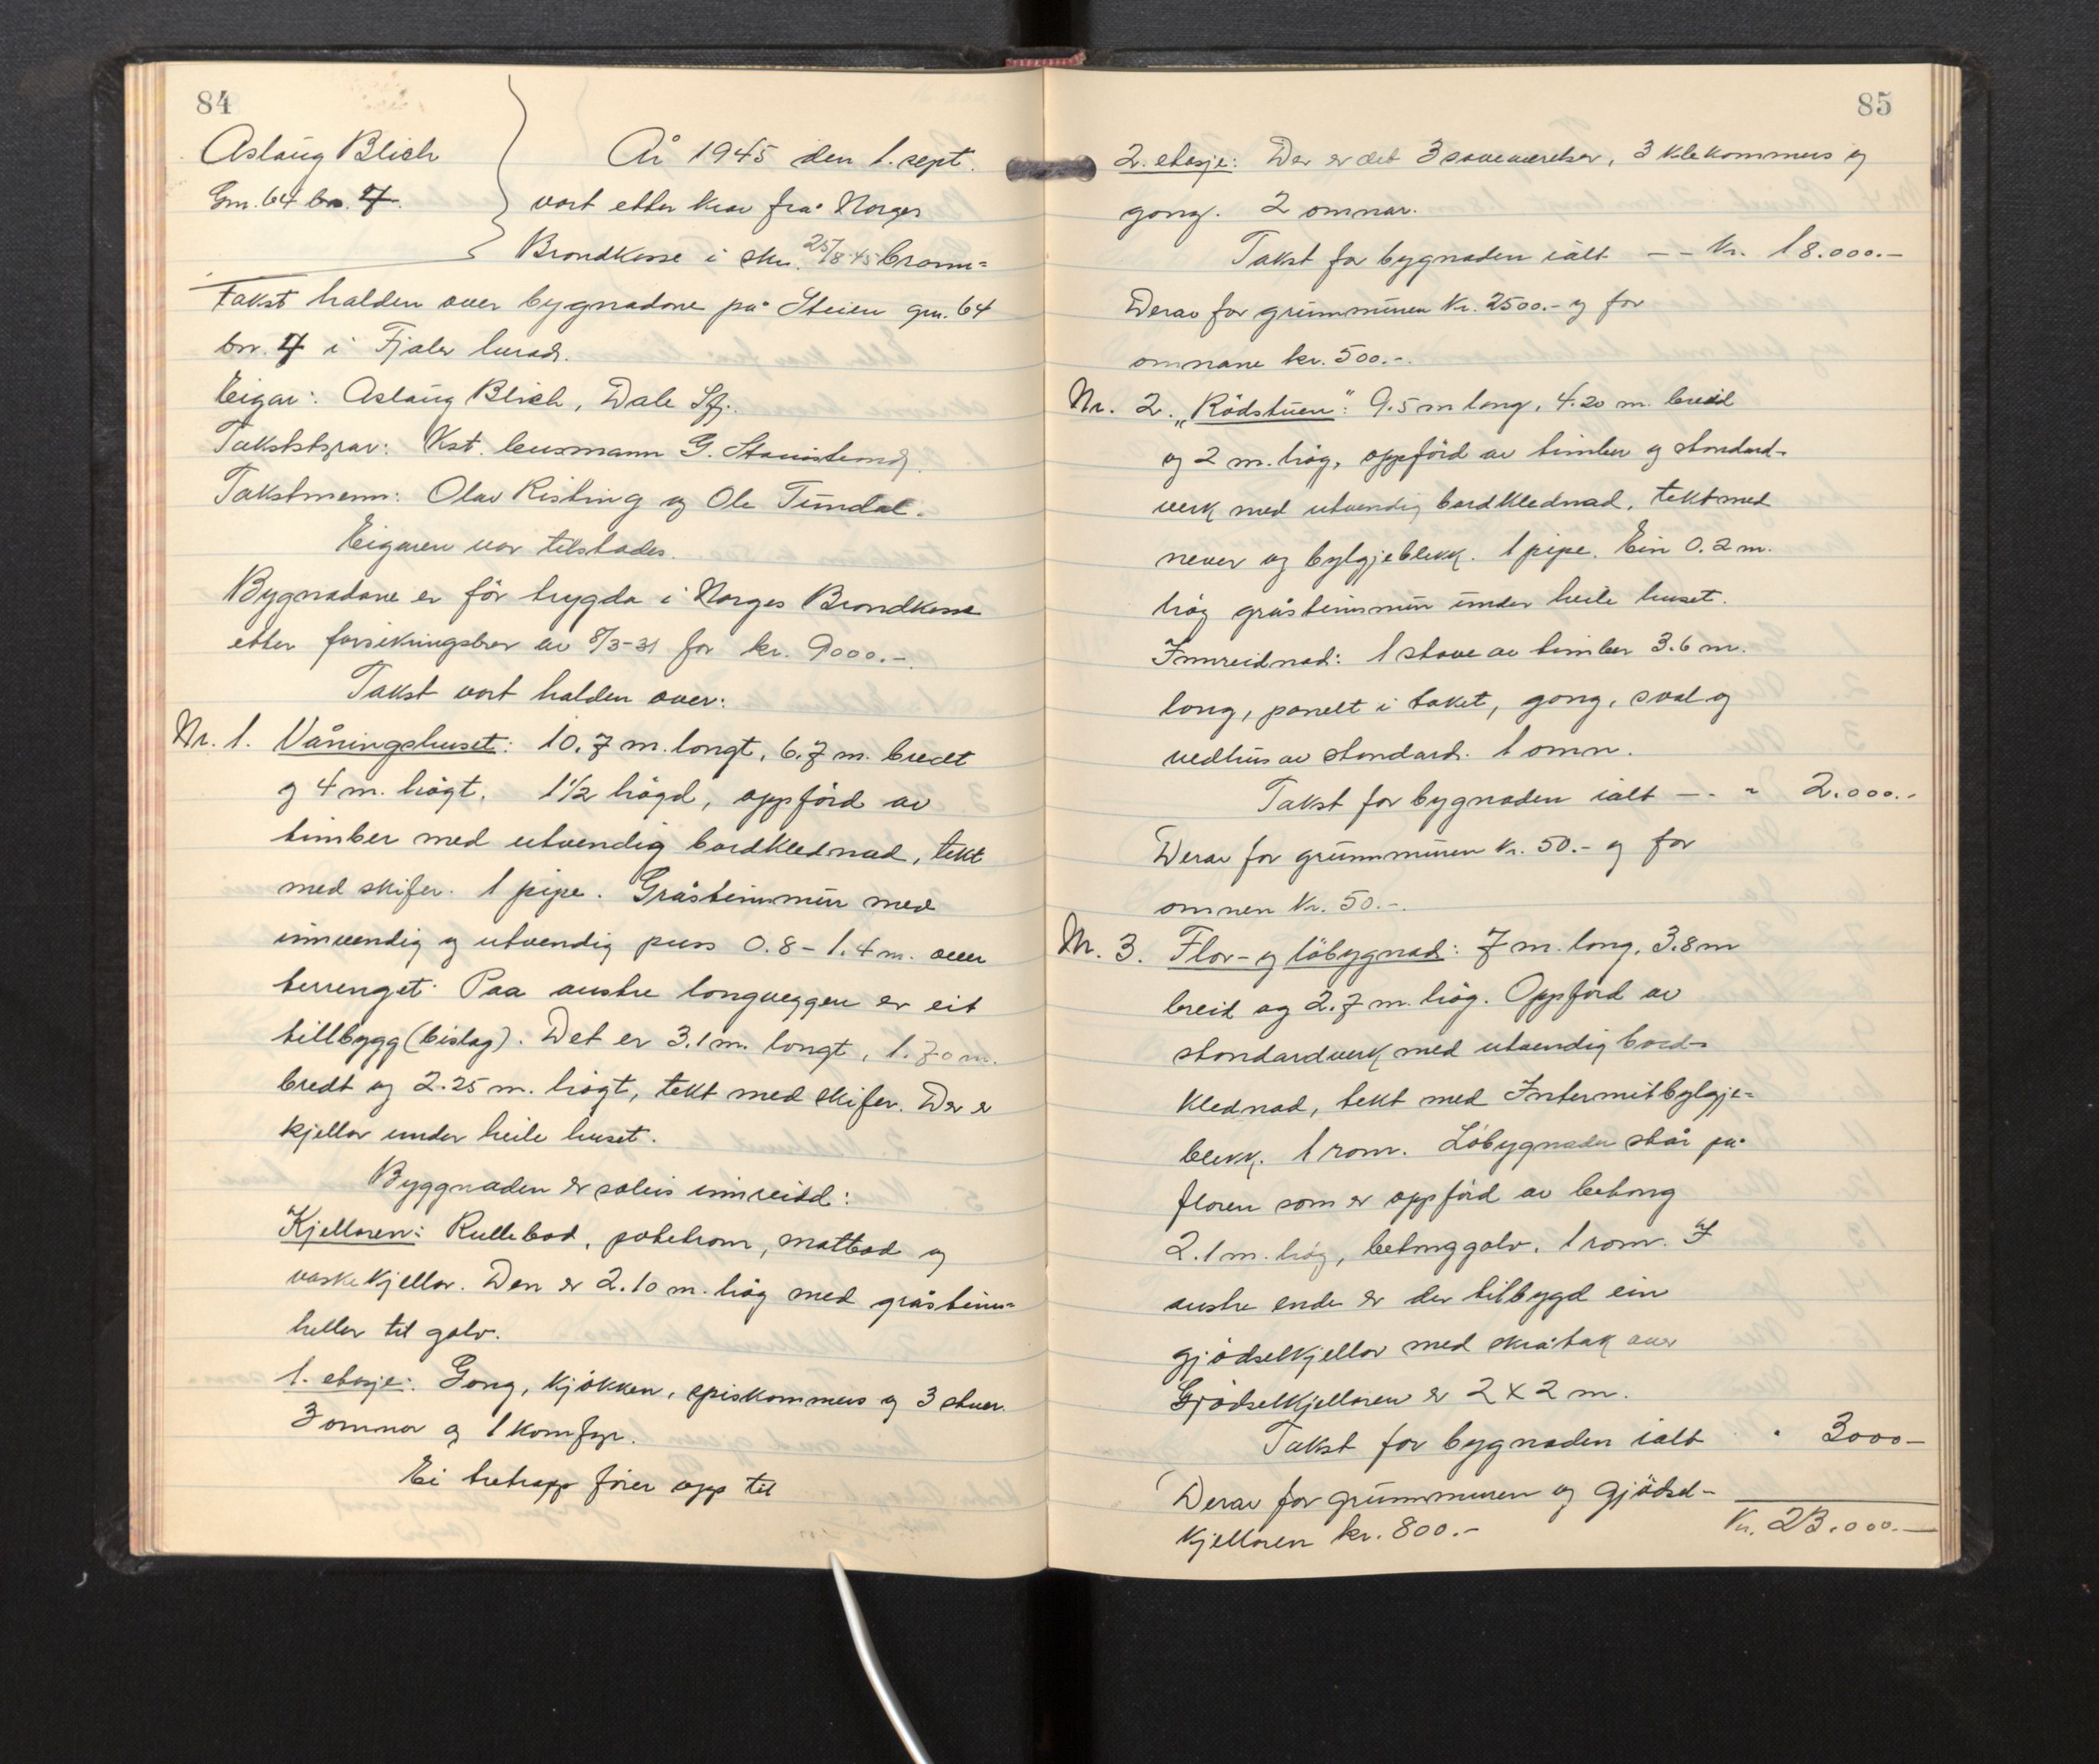 84
Aslaug Blich
Gnr. 64 bnr. 7.
År 1945 den 1. sept.
vart etter krav frå Norges
Brandkasse i skr. 25/8-45 brann=
takst halden over bygnadane på Steien gnr. 64
bnr. 7 i Fjaler herad.
Eigar: Aslaug Blich, Dale Sfj.
Takststyrar: Kst. lensmann G.
Takstmenn: Olav Risting og Ole Tundal.
Eigaren var tilstades.
Bygnadane er før trygda i Norges Brandkasse
etter forsikringsbrev av 8/3-31 for kr. 9000.-.
Takst vart halden over:
Nr. 1. Våningshuset: 10.7 m. langt, 6.7 m. bredt
og 4 m. högt. 1½ högd, oppförd av
timber med utvendig bordklednad, tekt
med skifer. 1 pipe. Gråsteinsmur med
innvendig og utvendig puss 0.8-1.4 m. over
terrenget. Paa austre langveggen er eit
tillbygg (bislag). Det er 3.1 m. langt, 1.70 m.
bredt og 2.25 m. högt, tekt med skifer. Der er
kjellar under heile huset.
Byggnaden er soleis innreidd:
Kjellaren: Rullebod, potetrom, matbod og
vaskekjellar. Den er 2.10 m. høg med gråsteins=
heller til golv.
1. etasje: Gong, kjökken, spiskammers og 3 stuer.
3 omnar og 1 komfyr.
Ei tretrapp förer opp til
85
2. etasje: Der er det 3 soveværelser, 3 klekammers og
gong. 2 omnar.
Takst for bygnaden ialt -- Kr. 18.000.-
Derav for grunnmuren Kr. 2500.- og for
omnane kr. 500.-.
Nr. 2. "Rådstuen": 9.5 m lang, 4.20 m. breid
og 2 m. høg, oppförd av timber og standard-
verk med utvendig bordklednad, tekt med
never og bylgjeblekk. 1 pipe. Ein 0.2 m.
høg gråsteinsmur under heile huset.
Innreidnad: 1 stove av timber 3.6 m.
lang, panelt i taket, gong, sval og
vedhus av standard. 1 omn.
Takst for bygnaden ialt -- " 2.000.-
Derav for grunnmuren kr. 50.- og for
omnen kr. 50.-.
Nr. 3. Flor- og löbygnad: 7 m. lang, 3.8 m
breid og 2.7 m. høg. Oppførd av
standardverk med utvendig bord-
klednad, tekt med Internitbylgje=
blekk. 1 rom. Löbygnaden står på
floren som er oppförd av betong
2.1 m. høg, betonggolv. 1 rom. I
austre ende er der tilbygd ein
gjödselkjellar med skråtak over
Gjödselkjellaren er 2 x 2 m.
Takst for bygnaden ialt " 3000-
Derav for grunnmuren og gjödsel-
kjellaren kr. 800.-
Kr. 23.000.-